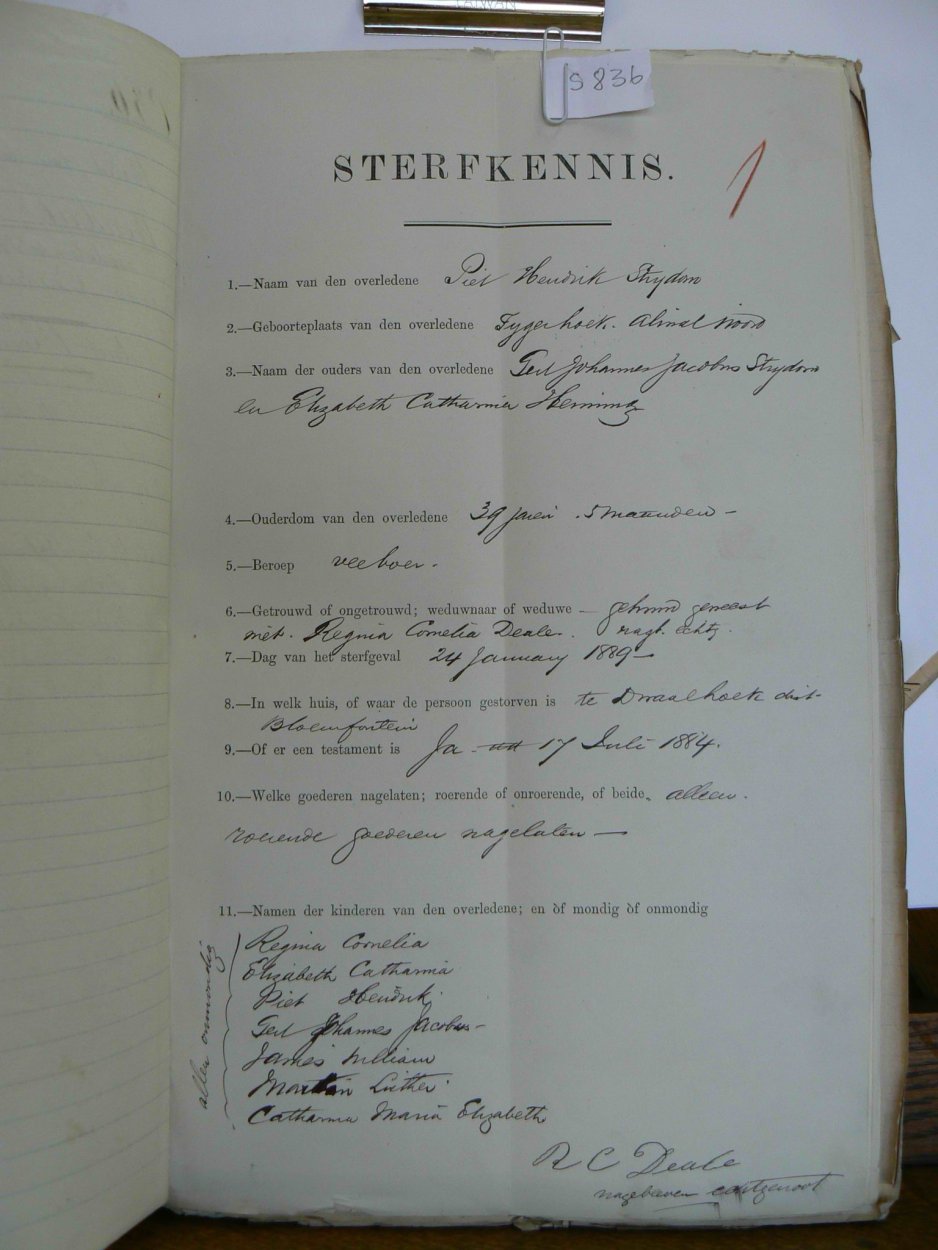 TAIWAN
S 836
STERFKENNIS.
1
1.—Naam van den overledene Piet Hendrik Strydom
2.—Geboorteplaats van den overledene Tygerhoek. Aliwal Noord
3.—Naam der ouders van den overledene Gert Johannes Jacobus Strydom
en Elizabeth Catharina
4.—Ouderdom van den overledene 39 jaren 5 maanden –
5.—Beroep veeboer.
6.—Getrouwd of ongetrouwd; weduwnaar of weduwe – getrouwd geweest
met. Regina Cornelia Deale.
7.—Dag van het sterfgeval 24 January 1889 –
8.—In welk huis, of waar de persoon gestorven is te Draaihoek dist.
Bloemfontein
9.—Of er een testament is Ja 17 Juli 1884.
10.—Welke goederen nagelaten; roerende of onroerende, of beide. alleen.
roerende goederen nagelaten –
11.—Namen der kinderen van den overledene; en òf mondig òf onmondig
allen onmondig
Regina Cornelia
Elizabeth Catharina
Piet Hendrik.
Gert Johannes Jacobus –
James William
Martin Luther
Catharina Maria Elizabeth
R C Deale
nagebleven echtgenoot